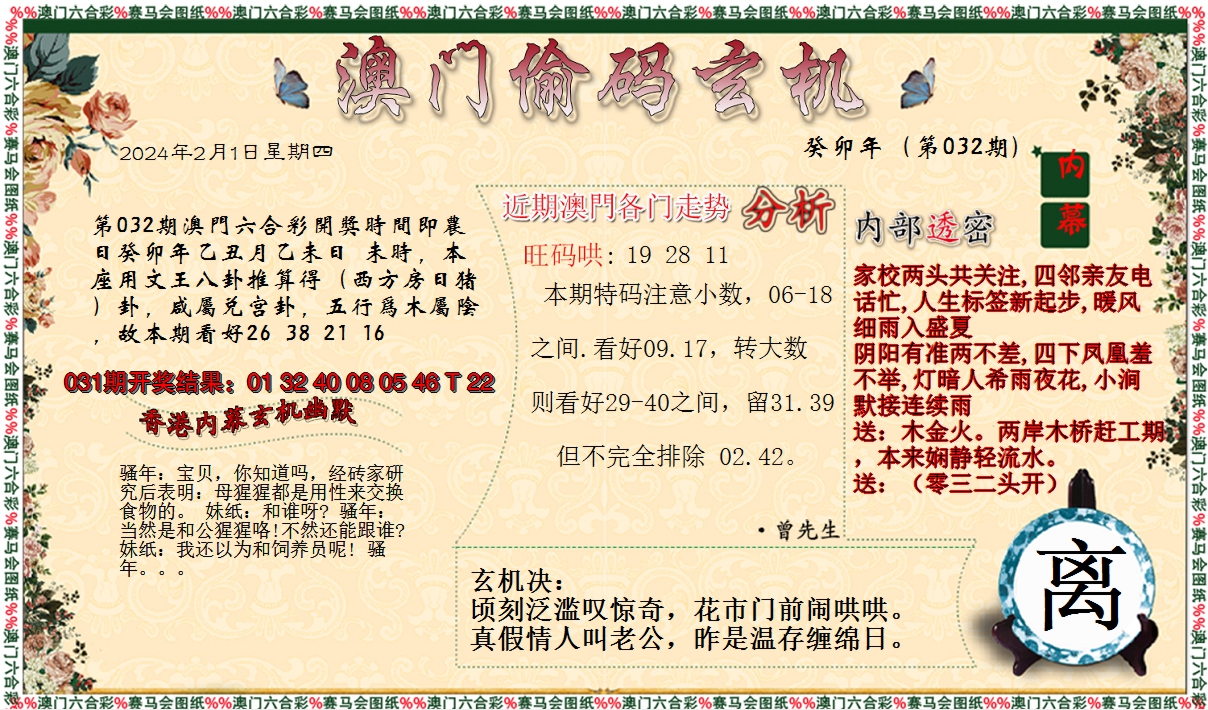 %%澳门六合彩%赛马会图纸%%澳门六合彩%赛马会图纸%%澳门六合彩%赛马会图纸%%澳门六合彩%赛马会图纸%%澳门六合彩%赛马会图纸%%澳门六合彩%赛马会图纸%%
澳门偷码玄机
2024年2月1日星期四
癸卯年（第032期）
内
幕
第032期澳門六合彩開獎時間即農
日癸卯年乙丑月乙未日 未時，本
座用文王八卦推算得（西方房日猪
）卦，咸屬兌宫卦，五行爲木屬陰
，故本期看好26 38 21 16
031期开奖结果：01 32 40 08 05 46 T 22
香港内幕玄机幽默
骚年：宝贝，你知道吗，经砖家研
究后表明：母猩猩都是用性来交换
食物的。 妹纸：和谁呀? 骚年：
当然是和公猩猩咯!不然还能跟谁?
妹纸：我还以为和饲养员呢! 骚
年。。。
近期澳門各门走势 分析
旺码哄: 19 28 11
本期特码注意小数，06-18
之间.看好09.17，转大数
则看好29-40之间，留31.39
但不完全排除 02.42。
·曾先生
内部透密
家校两头共关注,四邻亲友电
话忙,人生标签新起步,暖风
细雨入盛夏
阴阳有准两不差,四下凤凰羞
不举,灯暗人希雨夜花,小涧
默接连续雨
送：木金火。两岸木桥赶工期
，本来娴静轻流水。
送：（零三二头开）
玄机决：
顷刻泛滥叹惊奇，花市门前闹哄哄。
真假情人叫老公，昨是温存缠绵日。
离
%%澳门六合彩%赛马会图纸%%澳门六合彩%赛马会图纸%%澳门六合彩%赛马会图纸%%澳门六合彩%赛马会图纸%%澳门六合彩%赛马会图纸%%澳门六合彩%赛马会图纸%%